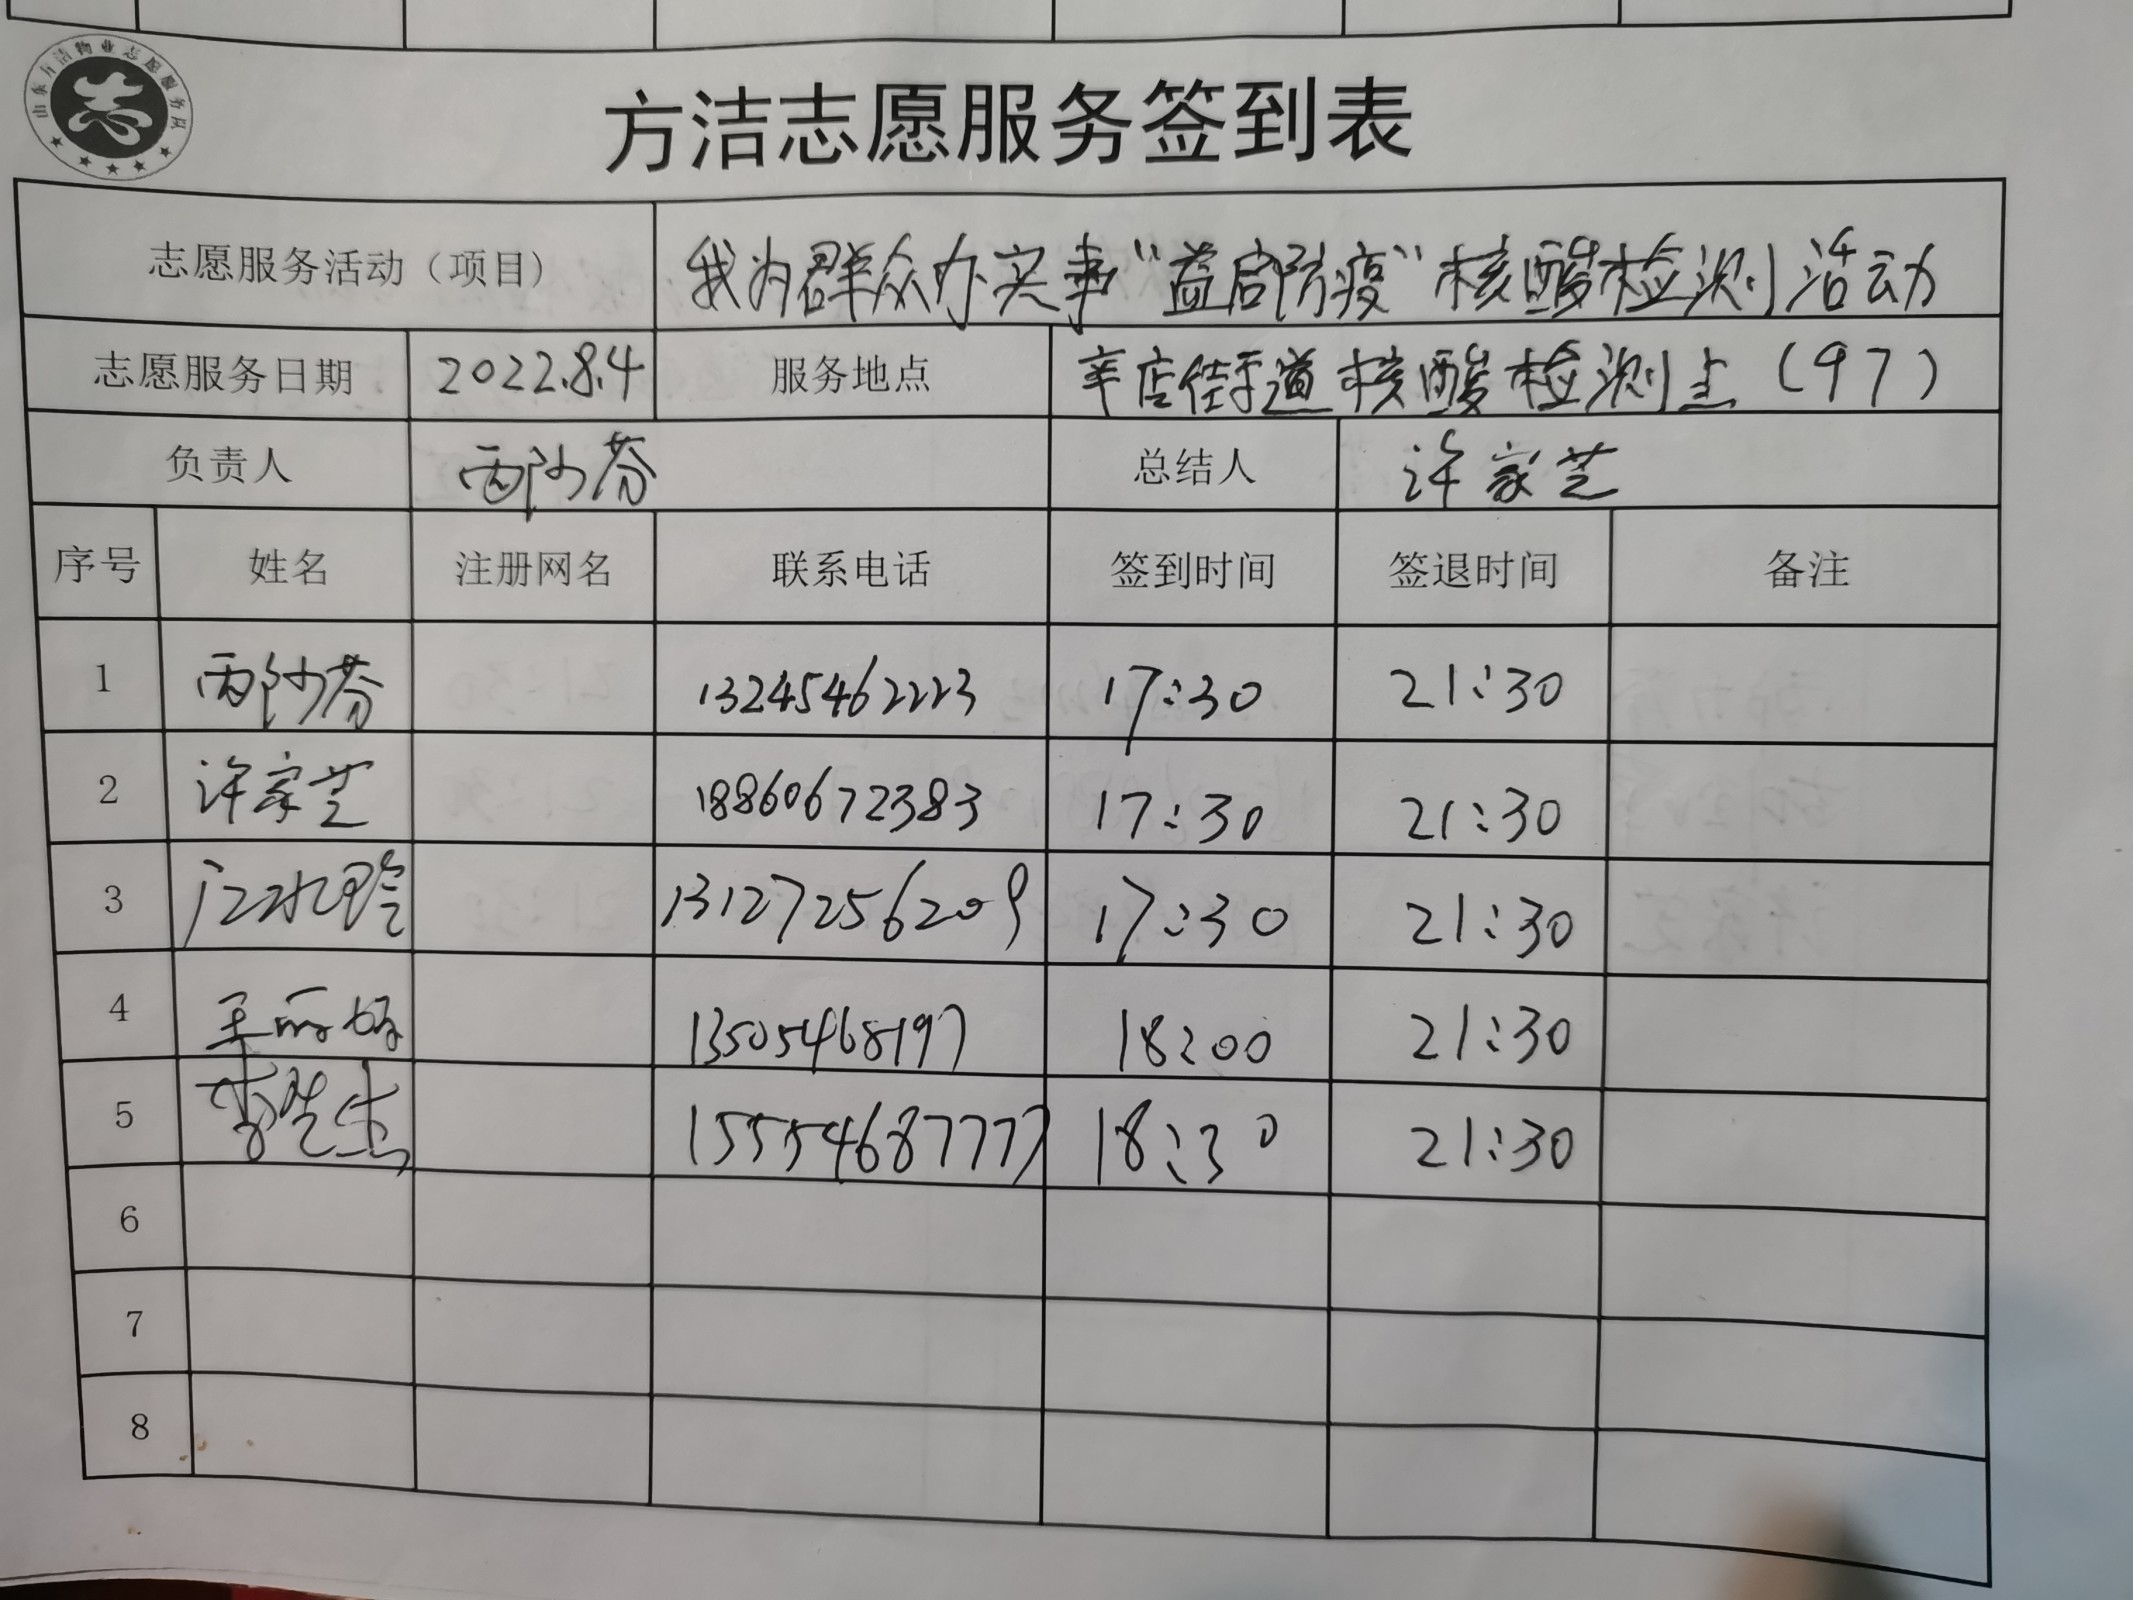 山东方洁物业志愿服务队
方洁志愿服务签到表
志愿服务活动（项目） 我为群众办实事“益启防疫”核酸检测活动
志愿服务日期 2022.8.4 服务地点 辛店街道核酸检测点（97）
负责人 总结人 许家芝
序号 姓名 注册网名 联系电话 签到时间 签退时间 备注
1 13245462223 17:30 21:30
2 许家芝 18860672383 17:30 21:30
3 13127256209 17:30 21:30
4 13505468197 18:00 21:30
5 15554687777 18:30 21:30
6
7
8